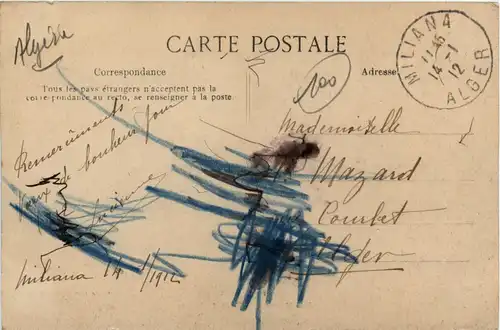 Algérie
CARTE POSTALE
MILIANA
11 45
14 - 1
12
ALGER
100
Correspondance
Adresse
Tous les pays étrangers n'acceptent pas la
correspondance au recto, se renseigner à la poste.
Remerciements
Vœux de bonheur pour
Miliana 14 1/1912
Mademoiselle
Mazard
Courbet
Alger